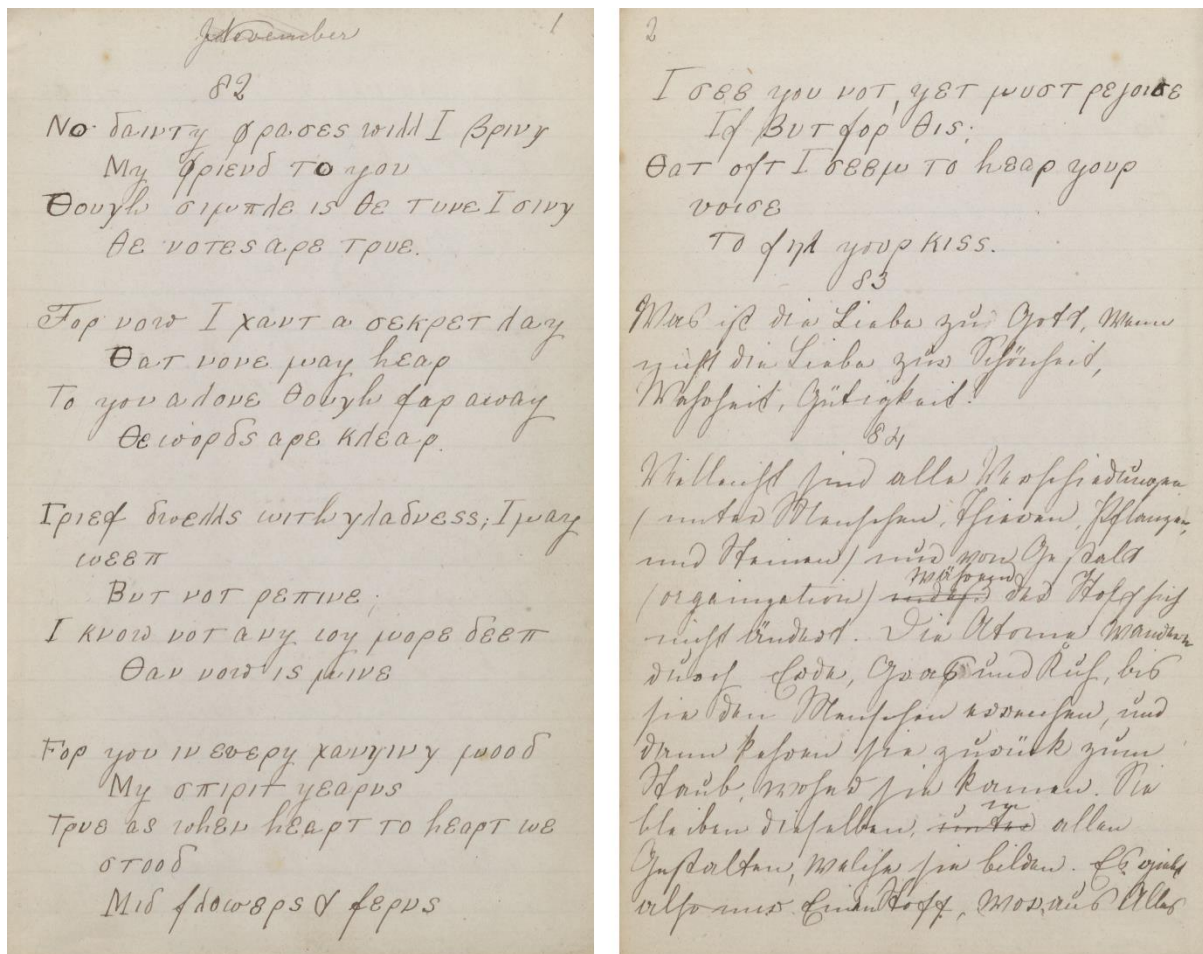 November
1
82
Νο δαιντy φρασες will I βρινγ
Μy φριενδ το yου
Θουγh σιμπλε ις θε τυνε I σινγ
θε νοτες αρε τρυε.
Fορ νοw I χαντ α σεκρετ λαy
Θατ νονε μαy hεαρ
Το yου αλονε θουγh fαρ αwαy
Θε wορδς αρε κλεαρ.
Γριεf δwελλς wιτh γλαδνεςς; I μαy
wεεπ
Βυτ νοτ ρεπινε;
I κνοw νοτ ανy ιοy μορε δεεπ
Θαν νοw ις μινε
Fορ yου ιν εvερy χανγινγ μοοδ
Μy σπιριτ yεαρνς
Τρυε ας whεν hεαρτ το hεαρτ wε
στοοδ
Μιδ fλοwερς & fερνς
2
I σεε yου νοτ, yετ μυστ ρεjοισε
Ιf βυτ fορ θις;
Θατ οfτ I σεεμ το hεαρ yουρ
vοισε
Το fηλ yουρ κιςς.
83
Was ist die Liebe zu Gott, wenn
nicht die Liebe zur Schönheit,
Wahrheit, Gütigkeit?
84
Vielleicht sind alle Verschiedungen
(unter Menschen, Thieren, Pflanzen,
und Steinen) nur von Gestalt
(organization) während der Stoff sich
nicht ändert. Die Atome wandern
durch Erde, Gras und Kuh, bis
sie den Menschen erreichen, und
dann kehren sie zurück zum
Staub, woher sie kamen. Sie
bleiben dieselben, unter in allen
Gestalten, welche sie bilden. Es giebt
also nur Einen Stoff, woraus Alles